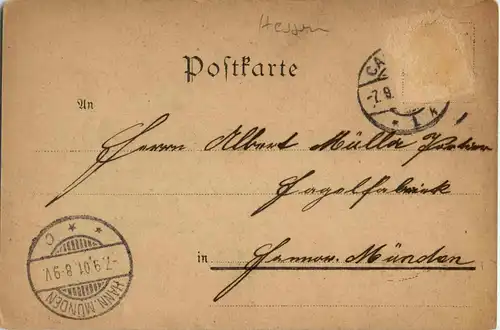 Hessen
Postkarte
CA
-7.9.
* 1 k
An
Herrn Albert Müller
Fagelfabrik
in Hannov. Münden
HANN. MÜNDEN
-7.9.01.8-9V.
* * C